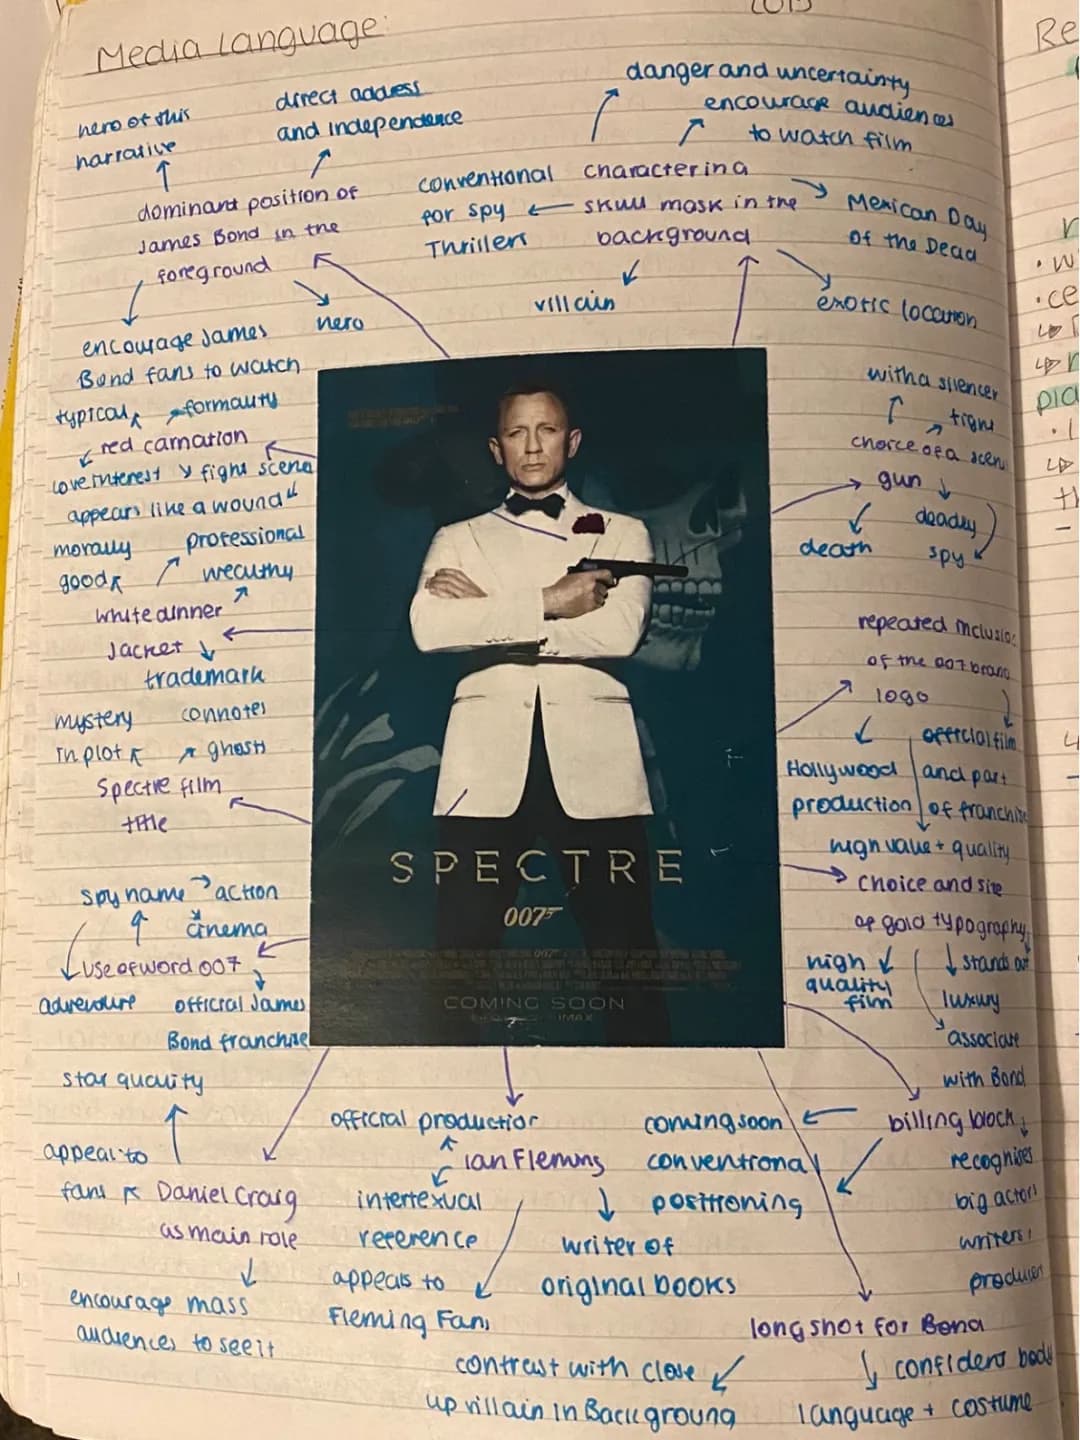 2015
Media Language:
hero of this
narrative
direct address
and independence
dominant position of
James Bond in the
foreground
encourage James
Bond fans to watch
hero
danger and uncertainty
encourage audiences
to watch film
conventional
for spy
Thrillers
character in a
skull mask in the
background
Mexican Day
of the Dead
villain
exotic location
typical
formality
red carnation
love interest
fight scene
appears like a wound
morally
good
professional
wealthy
white dinner
Jacket
trademark
mystery
in plot
connotes
ghosts
Spectre film
title
spy name
action
cinema
use of word 007
adventure
official James
Bond franchise
with a silencer
fight
choice of a
gun
death
deadly
spy
repeated inclusion
of the 007 brand
logo
Hollywood
production
official film
and part
of franchise
high value + quality
choice and size
of gold typography
high
quality
film
stands out
luxury
associate
with Bond
SPECTRE
007
007
COMING SOON
IMAX
star quality
appeal to
fans
Daniel Craig
as main role
encourage mass
audiences to see it
official production
Ian Fleming
intertexual
reference
appeals to
Fleming Fans
writer of
original books
coming soon
conventional
positioning
billing block
recognises
big actors
writers
producers
long shot for Bond
contrast with close
up villain in Background
confident body
language + costume
Re